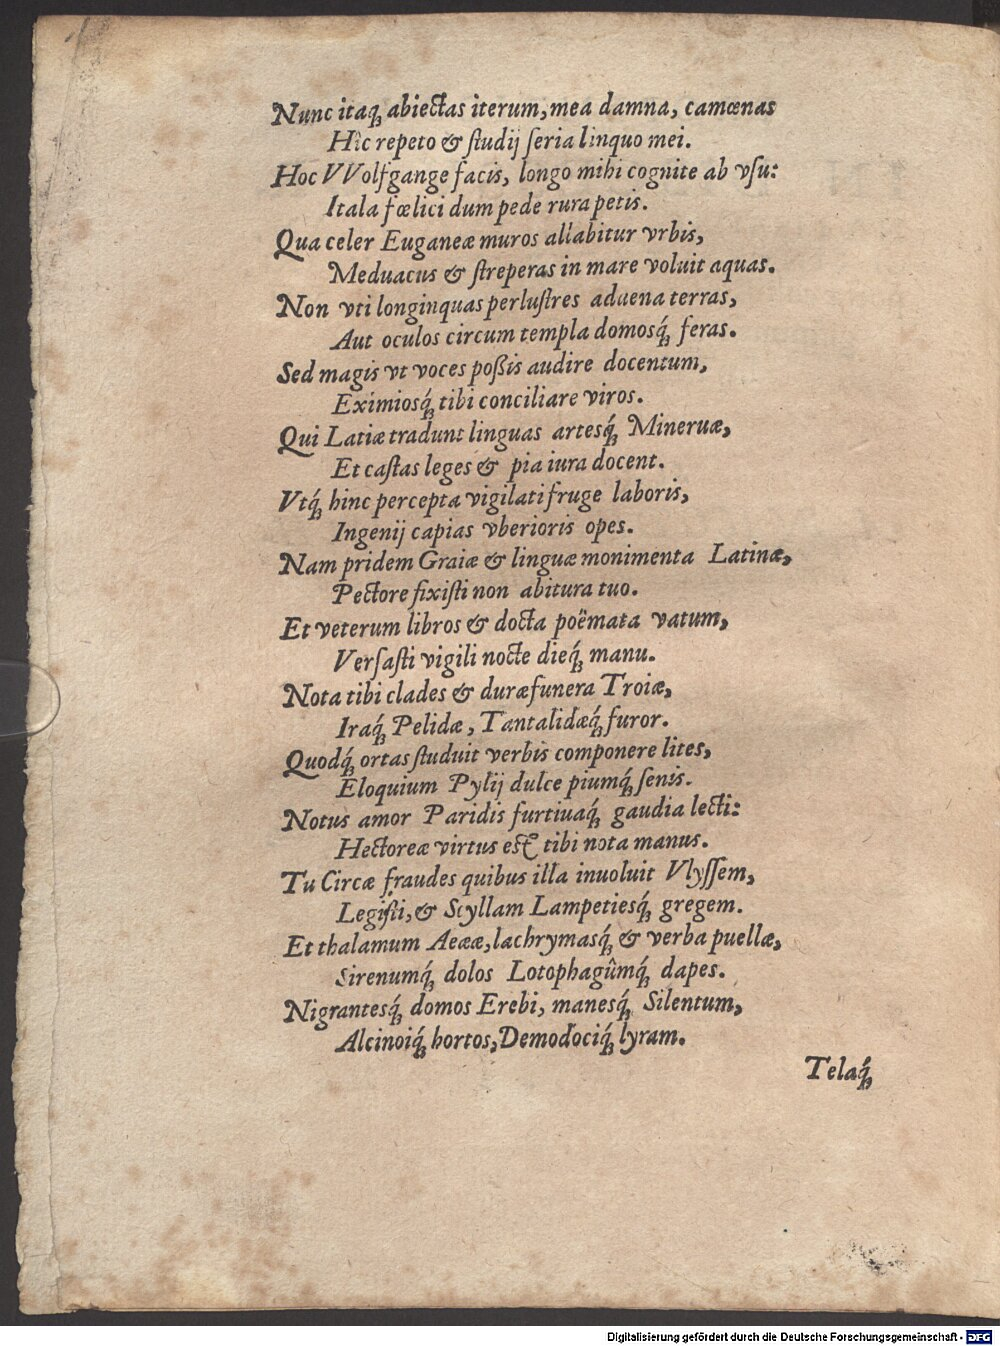 Nunc itaq́ꝫ abiectas iterum, mea damna, camœnas
Hîc repeto & ſtudij ſeria linquo mei.
Hoc VVolfgange facis, longo mihi cognite ab vſu:
Itala fœlici dum pede rura petis.
Qua celer Euganeæ muros allabitur vrbis,
Meduacus & ſtreperas in mare voluit aquas.
Non vti longinquas perluſtres aduena terras,
Aut oculos circum templa domosq́ꝫ feras.
Sed magis vt voces poßis audire docentum,
Eximiosq́ꝫ tibi conciliare viros.
Qui Latiæ tradunt linguas artesq́ꝫ Mineruæ,
Et caſtas leges & pia iura docent.
Vtq́ꝫ hinc percepta vigilati fruge laboris,
Ingenij capias vberioris opes.
Nam pridem Graiæ & linguæ monimenta Latinæ,
Pectore fixiſti non abitura tuo.
Et veterum libros & docta poëmata vatum,
Verſaſti vigili nocte dieq́ꝫ manu.
Nota tibi clades & duræ funera Troiæ,
Iraq́ꝫ Pelidæ, Tantalidæq́ꝫ furor.
Quodq́ꝫ ortas ſtuduit verbis componere lites,
Eloquium Pylij dulce piumq́ꝫ ſenis.
Notus amor Paridis furtiuaq́ꝫ gaudia lecti:
Hectoreæ virtus est tibi nota manus.
Tu Circæ fraudes quibus illa inuoluit Vlyſſem,
Legiſti, & Scyllam Lampetiesq́ꝫ gregem.
Et thalamum Aeææ, lachrymasq́ꝫ & verba puellæ,
Sirenumq́ꝫ dolos Lotophagûmq́ꝫ dapes.
Nigrantesq́ꝫ domos Erebi, manesq́ꝫ Silentum,
Alcinoiq́ꝫ hortos, Demodociq́ꝫ lyram.
Telaq́ꝫ
Digitalisierung gefördert durch die Deutsche Forschungsgemeinschaft - DFG